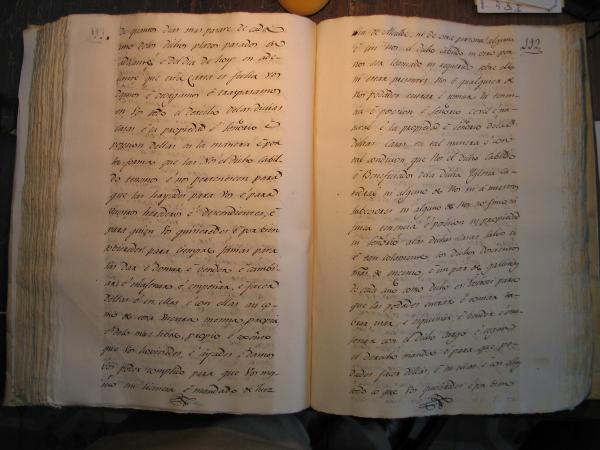 de quantos dias mas pasare de cada
uno delos dichos plazos pasados en
adelante, é del dia de hoy en ade-
lante que esta carta es fecha vos
damos é otorgamos é traspasamos
en vos todo el derecho delas dichas
casas é la propiedad é señorio é
posesion dellas en la manera é por
la forma que las Nos el dicho Cabil-
do tenemos é nos pertenescen para
que las hayades para Vos é para
vuestros herederos é descendientes, é
para quien Vos quisieredes é por bien
tobieredes para siempre jamas para
las dar é donar é vender é cambi-
ar é enagenar é empeñar, é facer
dellas é en ellas é con ellas asi co-
mo de cosa vuestra mesma propria
é dela mas libre, propio é
que Vos hoviesedes, é ayades é damos
vos poder complido para que Vos mes-
mo sin licencia é mandado de Juez
192
nin de Alcalde, ni de otra persona alguna
é sin Nos el dicho Cabildo ni otro por
nos ser llamado ni requerido sobre ello
ni estar presentes Nos ó qualquiera de
Nos podades entrar é tomar la tenen-
cia é posesion é señorio cevil é na-
tural é la propiedad é señorio delas
dichas casas, en tal manera é con
tal condicion que Nos el dicho Cabildo
é Beneficiados dela dicha Yglesia Ca-
tedral ni alguno de Nos ni nuestros
subcesores ni alguno de Nos no finque ni
finca tenencia é posesion ni propiedad
ni señorio alas dichas Casas salvo si
é tan solamente los dichos doscientos
mrs. de encenso, é un par de gallinas
de cada año como dicho es
que las podades entrar é tomar la-
brar, usar, é esquilmar é vender é ena-
jenar con el dicho cargo é segund
el derecho manda é para que po-
dades facer dellas, é en ellas é con ellas
todo lo que Vos quisierdes é por bien